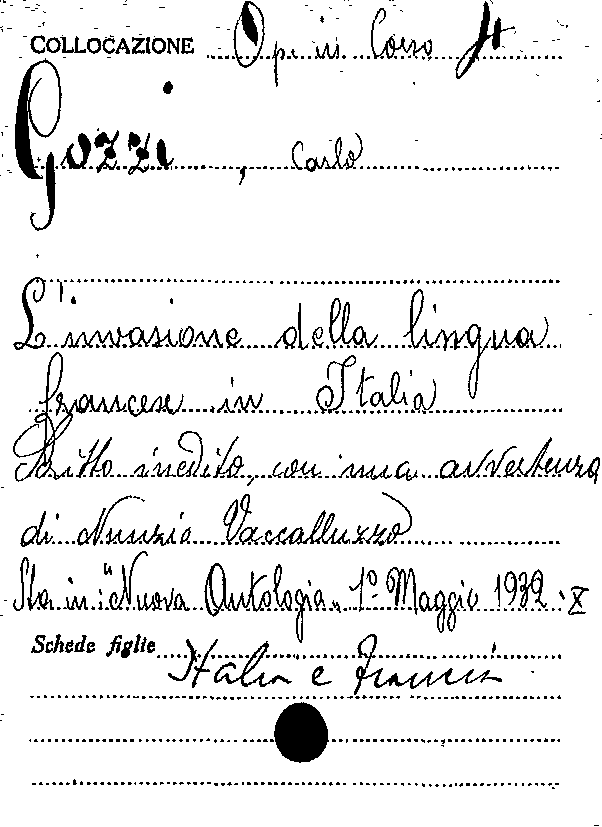 COLLOCAZIONE Op. in Corso 4
Gozzi, Carlo
L'invasione della lingua
francese in Italia
Scritto inedito, con una avvertenza
di Nunzio Vaccalluzzo
Sta in: "Nuova Antologia" 1º Maggio 1932 · X
Schede figlie Italia e Francia